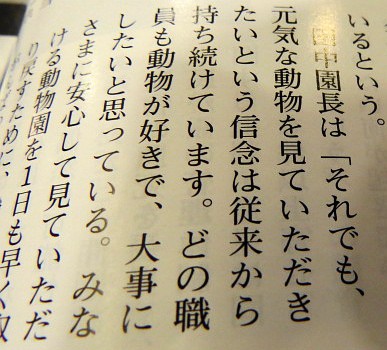 いるという。
田中園長は「それでも、
元気な動物を見ていただき
たいという信念は従来から
持ち続けています。どの職
員も動物が好きで、大事に
したいと思っている。みな
さまに安心して見ていただ
ける動物園を1日も早く取
り戻すために、